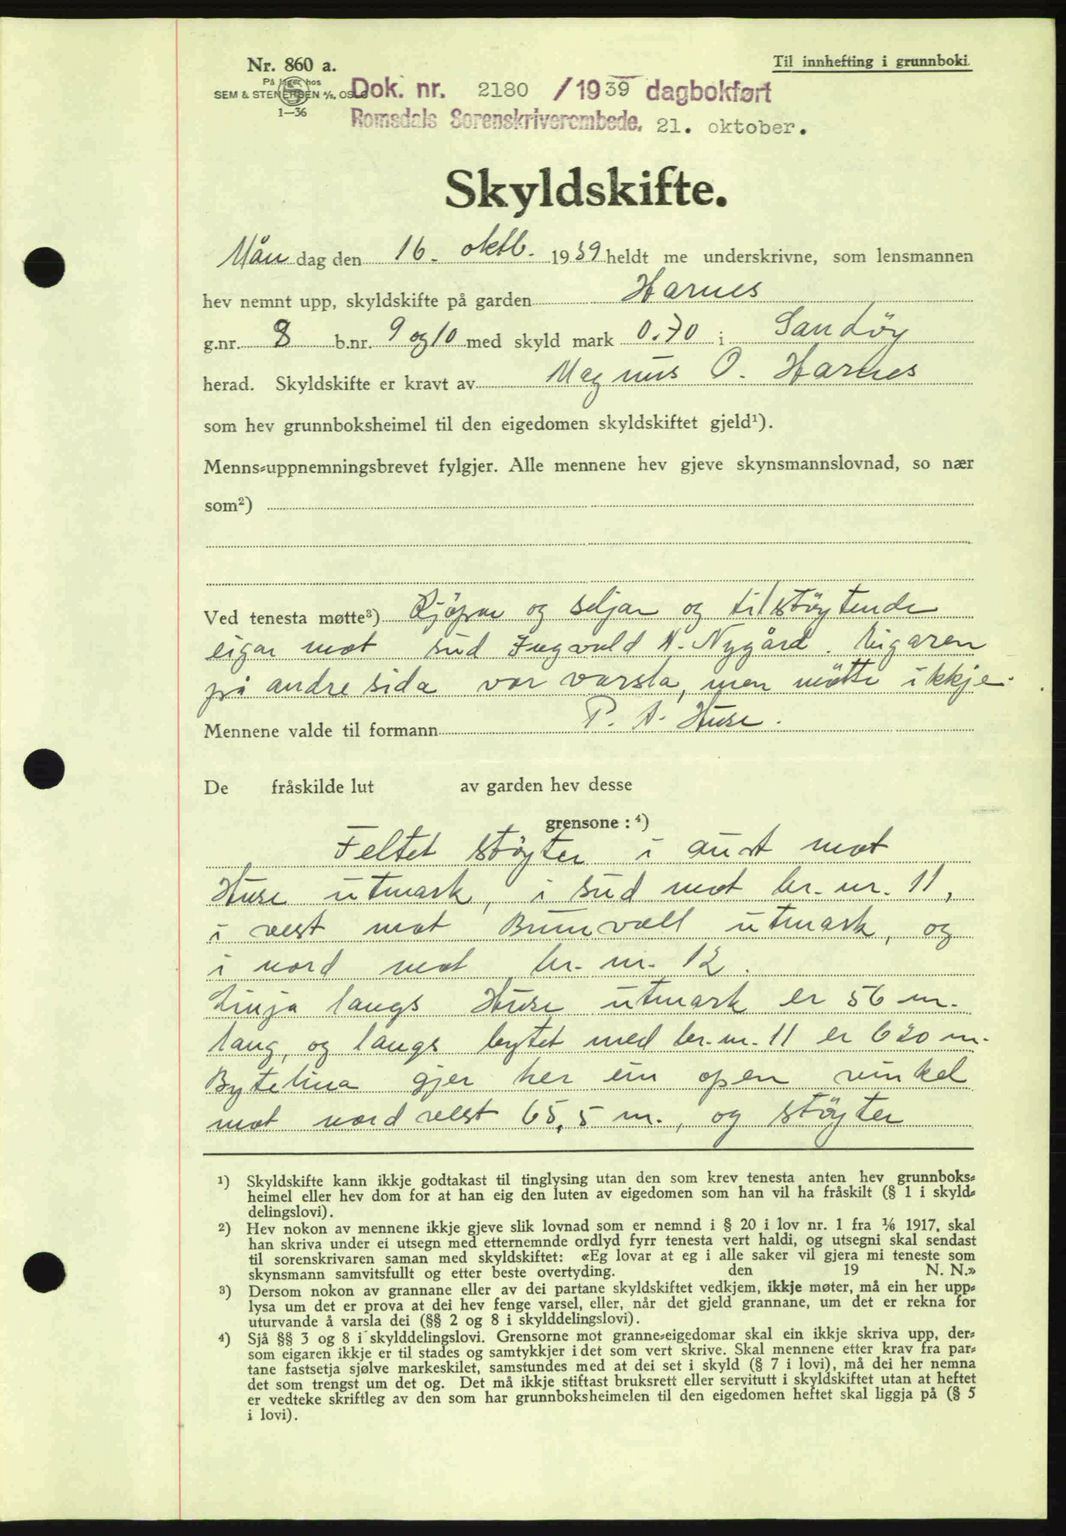 Nr. 860 a.
Til innhefting i grunnboki.
På lager hos
SEM & STENERSEN A/S, OSLO
1—36
Dok. nr. 2180 /1939 dagbokført
Romsdals Sorenskriverembede. 21. oktober.
Skyldskifte.
Måndag den 16. oktb. 1939 heldt me underskrivne, som lensmannen
hev nemnt upp, skyldskifte på garden Harnes
g.nr. 8 b.nr. 9 og 10 med skyld mark 0.70 i Sandöy
herad. Skyldskifte er kravt av Magnus O. Harnes
som hev grunnboksheimel til den eigedomen skyldskiftet gjeld¹).
Menns-uppnemningsbrevet fylgjer. Alle mennene hev gjeve skynsmannslovnad, so nær
som²)
Ved tenesta møtte³) Kjöpar og seljar og tilstöytende
eigar mot sud Ingvald N. Nygård. Eigaren
på andre sida var varsla, men mötte ikkje.
Mennene valde til formann P. A. Huse.
De fråskilde lut av garden hev desse
grensone : ⁴)
Feltet stöyter i aust mot
Huse utmark, i sud mot br. nr. 11,
i vest mot Brunvoll utmark, og
i nord mot br. nr. 12.
Linja langs Huse utmark er 56 m.
lang, og langs bytet med br. nr. 11 er 620 m.
Bytelina gjer her ein open vinkel
mot nordvest 65,5 m., og stöyter
¹) Skyldskifte kann ikkje godtakast til tinglysing utan den som krev tenesta anten hev grunnboks-
heimel eller hev dom for at han eig den luten av eigedomen som han vil ha fråskilt (§ 1 i skyld-
delingslovi).
²) Hev nokon av mennene ikkje gjeve slik lovnad som er nemnd i § 20 i lov nr. 1 fra ¹⁄₆ 1917, skal
han skriva under ei utsegn med etternemnde ordlyd fyrr tenesta vert haldi, og utsegni skal sendast
til sorenskrivaren saman med skyldskiftet: «Eg lovar at eg i alle saker vil gjera mi teneste som
skynsmann samvitsfullt og etter beste overtyding. den 19 N. N.»
³) Dersom nokon av grannane eller av dei partane skyldskiftet vedkjem, ikkje møter, må ein her upp-
lysa um det er prova at dei hev fenge varsel, eller, når det gjeld grannane, um det er rekna for
uturvande å varsla dei (§§ 2 og 8 i skylddelingslovi).
⁴) Sjå §§ 3 og 8 i skylddelingslovi. Grensorne mot granne-eigedomar skal ein ikkje skriva upp, der-
som eigaren ikkje er til stades og samtykkjer i det som vert skrive. Skal mennene etter krav fra par-
tane fastsetja sjølve markeskilet, samstundes med at dei set i skyld (§ 7 i lovi), må dei her nemna
det som trengst um det og. Det må ikkje stiftast bruksrett eller servitutt i skyldskiftet utan at heftet
er vedteke skriftleg av den som har grunnboksheimelen til den eigedomen heftet skal liggja på (§ 5
i lovi).